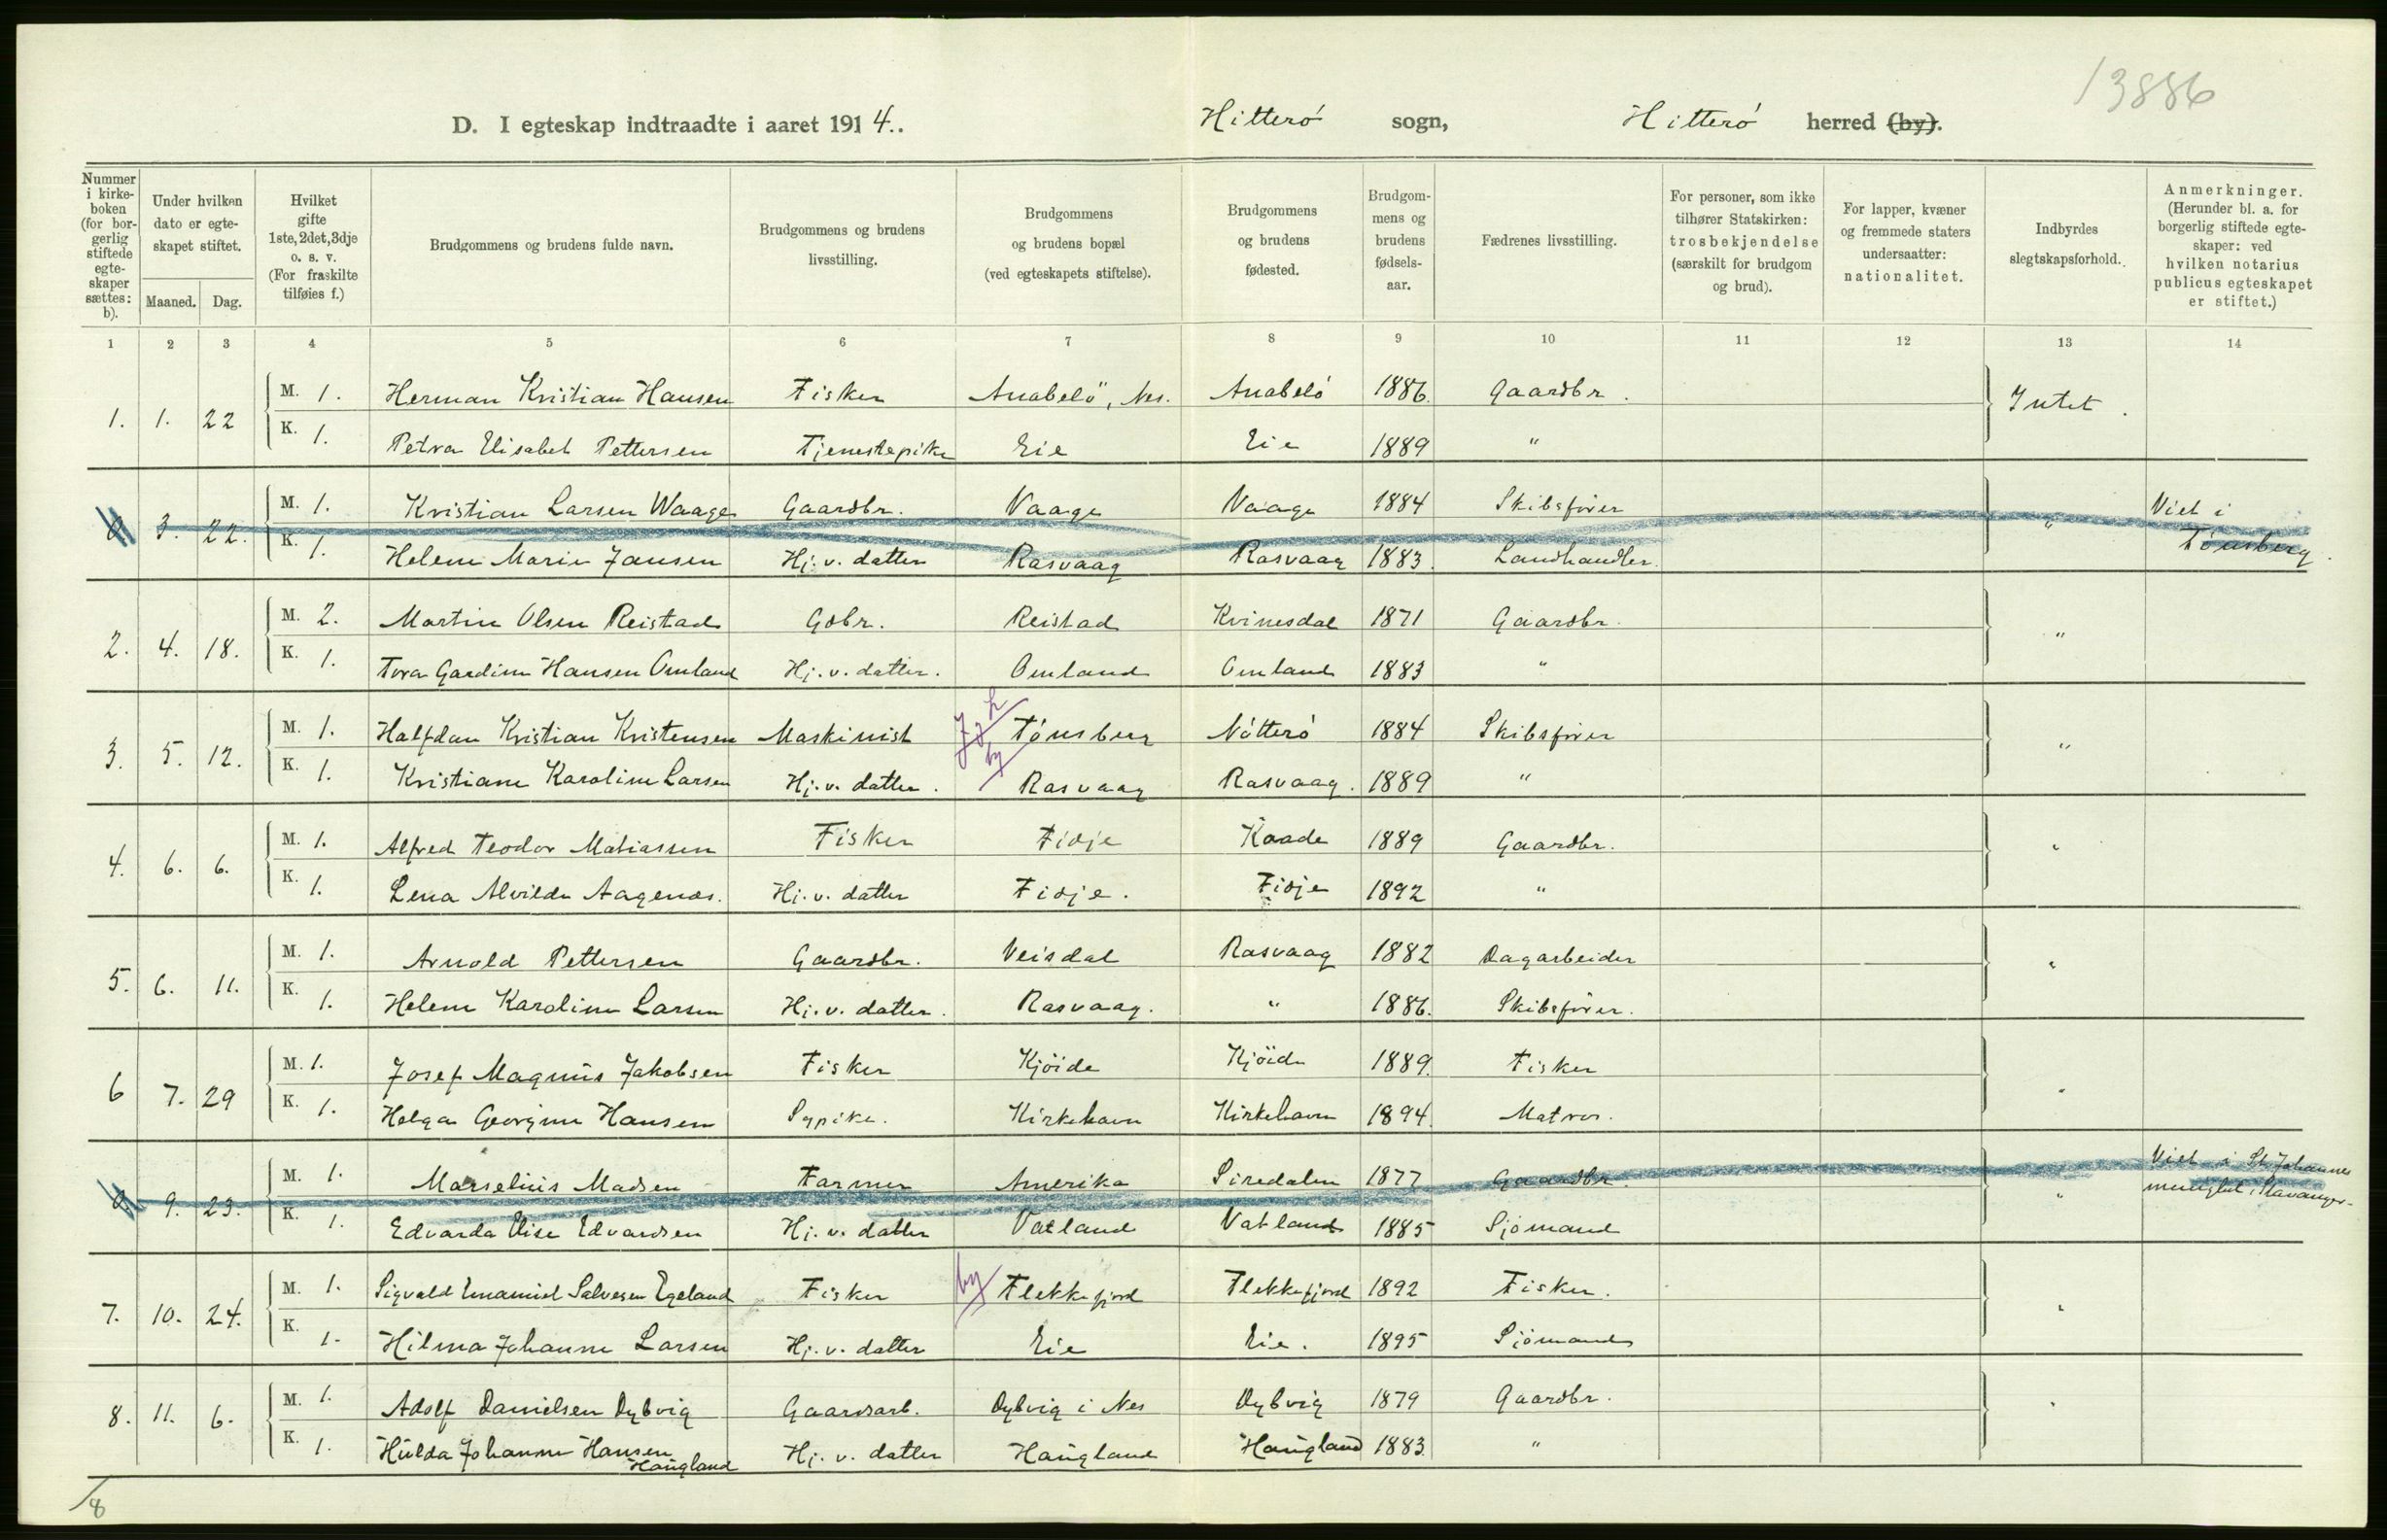 13886
D. I egteskap indtraadte i aaret 1914. Hitterö sogn, Hitterö herred (by).
Nummer i kirkeboken (for borgerlig stiftede egteskaper sættes: b).
Under hvilken dato er egteskapet stiftet.
Maaned. Dag.
Hvilket gifte 1ste, 2det, 3dje o. s. v. (For fraskilte tilføies f.)
Brudgommens og brudens fulde navn.
Brudgommens og brudens livsstilling.
Brudgommens og brudens bopæl (ved egteskapets stiftelse).
Brudgommens og brudens fødested.
Brudgommens og brudens fødselsaar.
Fædrenes livsstilling.
For personer, som ikke tilhører Statskirken: trosbekjendelse (særskilt for brudgom og brud).
For lapper, kvæner og fremmede staters undersaatter: nationalitet.
Indbyrdes slegtskapsforhold.
Anmerkninger. (Herunder bl. a. for borgerlig stiftede egteskaper: ved hvilken notarius publicus egteskapet er stiftet.)
1 2 3 4 5 6 7 8 9 10 11 12 13 14
1. 1. 22 M. 1. Herman Kristian Hansen Fisker Anabelö, Nes. Anabelö 1886. Gaardbr. Intet.
K. 1. Petra Elisabet Pettersen Tjenestepike Eie Eie 1889 "
0 3. 22. M. 1. Kristian Larsen Waage Gaardbr. Vaage Vaage 1884 Skibsfører " Viet i Tönsberg.
K. 1. Helene Marie Jansen Hj. v. datter Rasvaag Rasvaag 1883. Landhandler.
2. 4. 18. M. 2. Martin Olsen Reistad Gdbr. Reistad Kvinesdal 1871 Gaardbr. "
K. 1. Tora Gardine Hansen Omland Hj. v. datter. Omland Omland 1883 "
3. 5. 12. M. 1. Halfdan Kristian Kristensen Maskinist by Tönsberg Nötterö 1884 Skibsfører "
K. 1. Kristiane Karoline Larsen Hj. v. datter. Rasvaag Rasvaag. 1889 "
4. 6. 6. M. 1. Alfred Teodor Matiassen Fisker Fidje Kaade 1889 Gaardbr. "
K. 1. Lena Alvilde Aagenæs. Hj. v. datter Fidje. Fidje 1892 "
5. 6. 11. M. 1. Arnold Pettersen Gaardbr. Veisdal Rasvaag 1882 Dagarbeider "
K. 1. Helene Karoline Larsen Hj. v. datter. Rasvaag. " 1886. Skibsfører.
6 7. 29 M. 1. Josef Magnus Jakobsen Fisker Kjöide Kjöide 1889. Fisker "
K. 1. Helga Georgine Hansen Sypike. Kirkehavn Kirkehavn 1894. Matros.
0 9. 23. M. 1. Marselius Madsen Farmer Amerika Siredalen 1877 Gaardbr. " Viet i St. Johannes menighet, Stavanger.
K. 1. Edvarda Elise Edvardsen Hj. v. datter Vatland Vatland 1885 Sjömand
7. 10. 24. M. 1. Sigvald Emanuel Salvesen Egeland Fisker by Flekkefjord Flekkefjord 1892 Fisker. "
K. 1. Hilma Johanne Larsen Hj. v. datter Eie Eie. 1895 Sjömand
8. 11. 6. M. 1. Adolf Danielsen Dybvig Gaardarb. Dybvig i Nes Dybvig 1879 Gaardbr. "
K. 1. Hulda Johanne Hansen Haugland Hj. v. datter Haugland Haugland 1883. "
8